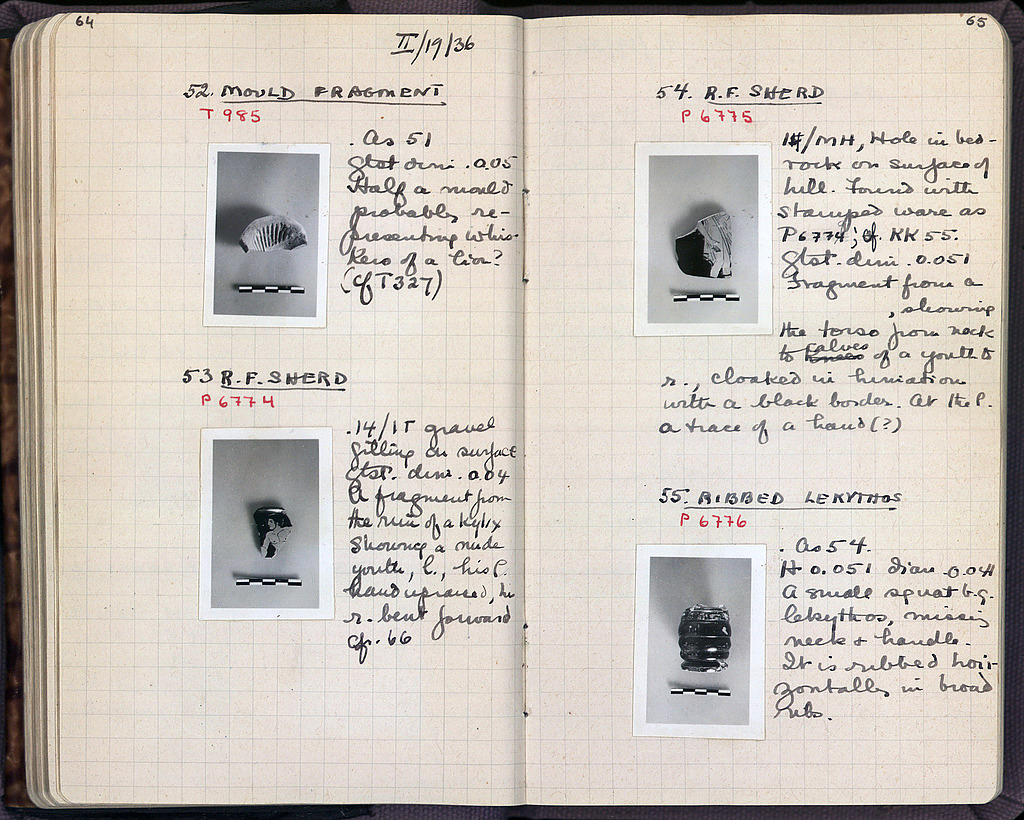 64
II/19/36
52. MOULD FRAGMENT
T 985
. As 51
Gtst dim. 0.05
Half a mould
probably re-
presenting whis-
kers of a lion?
(cf T327)
53 R.F. SHERD
P 6774
. 14/ΙΤ gravel
filling on surface
Gtst. dim. 0.04
A fragment from
the rim of a kylix
Showing a nude
youth, l., his l.
hand upraised, his
r. bent forward
cf. 66
65
54. R.F. SHERD
P 6775
/MH, Hole in bed-
rock on surface of
hill. Found with
stamped ware as
P 6774; cf. KK 55.
Gtst. dim. 0.051
Fragment from a
, showing
the torso from neck
to knees calves of a youth to
r., cloaked in himation
with a black border. At the l.
a trace of a hand (?)
55. RIBBED LEKYTHOS
P 6776
. As 54.
H 0.051 diam 0.041
A small squat b.g.
lekythos, missing
neck & handle.
It is ribbed hori-
zontally in broad
ribs.